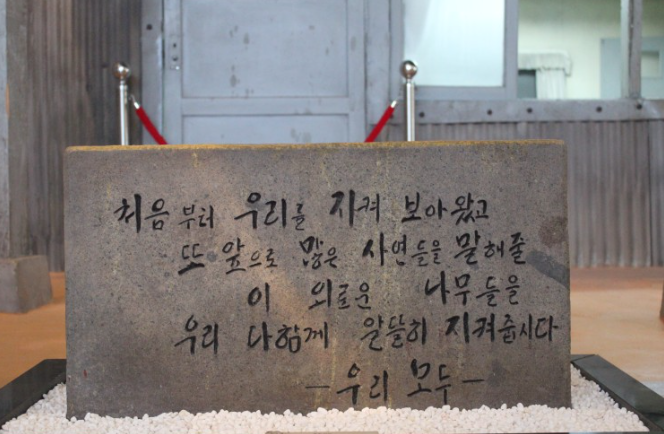 처음부터 우리를 지켜 보아왔고
또 앞으로 많은 사연들을 말해줄
이 외로운 나무들을
우리 다함께 알뜰히 지켜줍시다
- 우리 모두 -